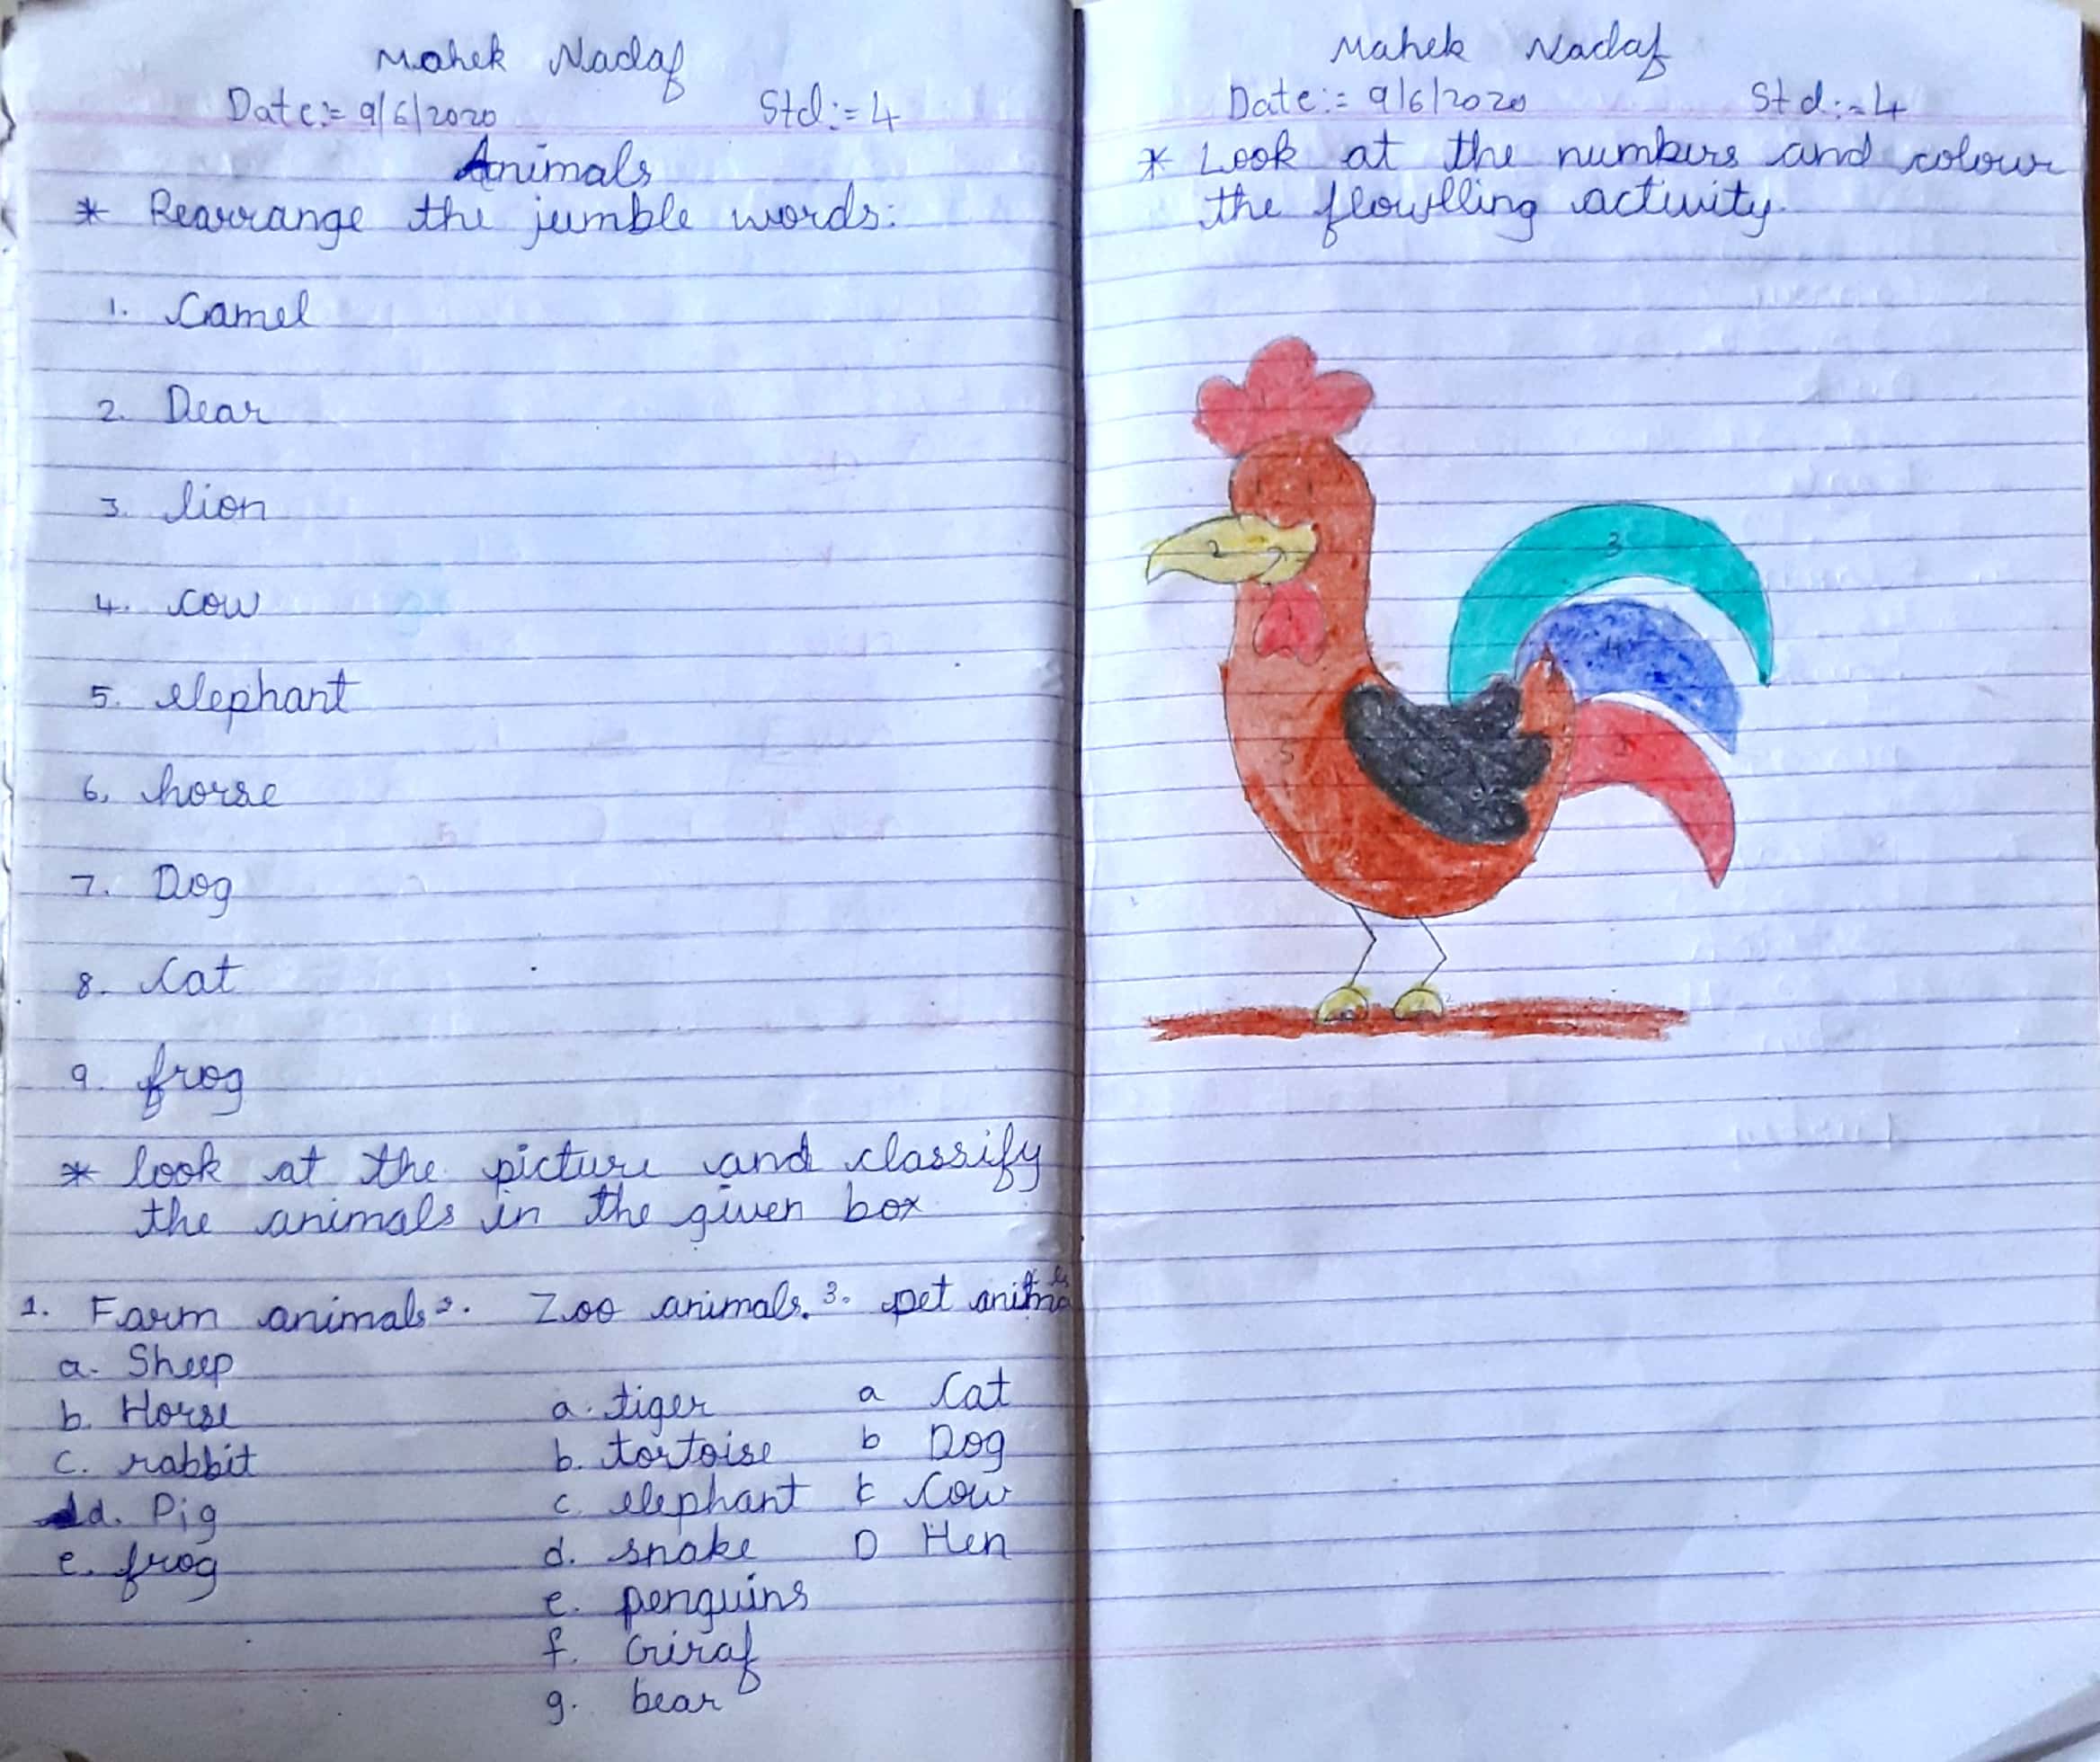 Mahek Nadaf
Date:= 9/6/2020 Std:= 4
Animals
* Rearrange the jumble words:
1. Camel
2. Dear
3. lion
4. cow
5. elephant
6. horse
7. Dog
8. Cat
9. frog
* look at the picture and classify
the animals in the given box
1. Farm animals 2. Zoo animals. 3. pet animals
a. Sheep
b. Horse a. tiger a Cat
c. rabbit b. tortoise b Dog
d. Pig c. elephant c Cow
e. frog d. snake D Hen
e. penguins
f. Giraf
g. bear
Mahek Nadaf
Date:= 9/6/2020 Std:=4
* Look at the numbers and colour
the flowlling activity.
3
2
1
4
5
1